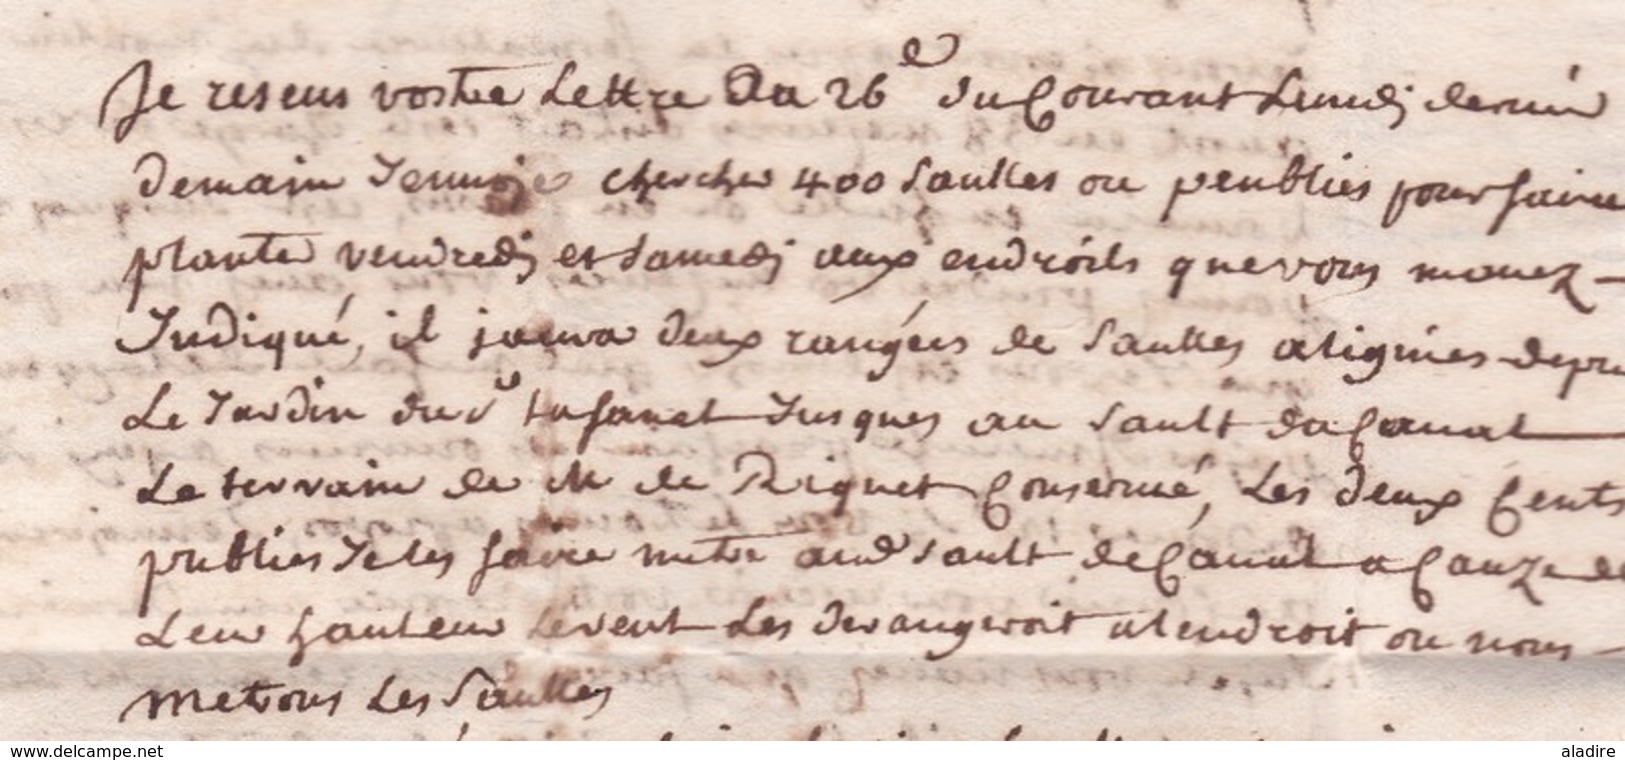 Je reseus vostre Lettre du 26e du Courant Lundi dernié
demain Jenuoje chercher 400 Saulles ou peublies pour faire
planter vendredi et Samedi aux endroits que vous mauez
Indiqué, il jaura deux rangées de Saulles aligniés depu
Le Jardin du Sr Jusques au Sault du Canal
Le terrain de M de Riquet Conserué, Les deux Cents
publies Je les faire metre au Sault de Canal a Cauze de
Leur hauteur Le vent Les derangeroit alendroit ou nous
metrons Les Saulles
www.delcampe.net
aladire